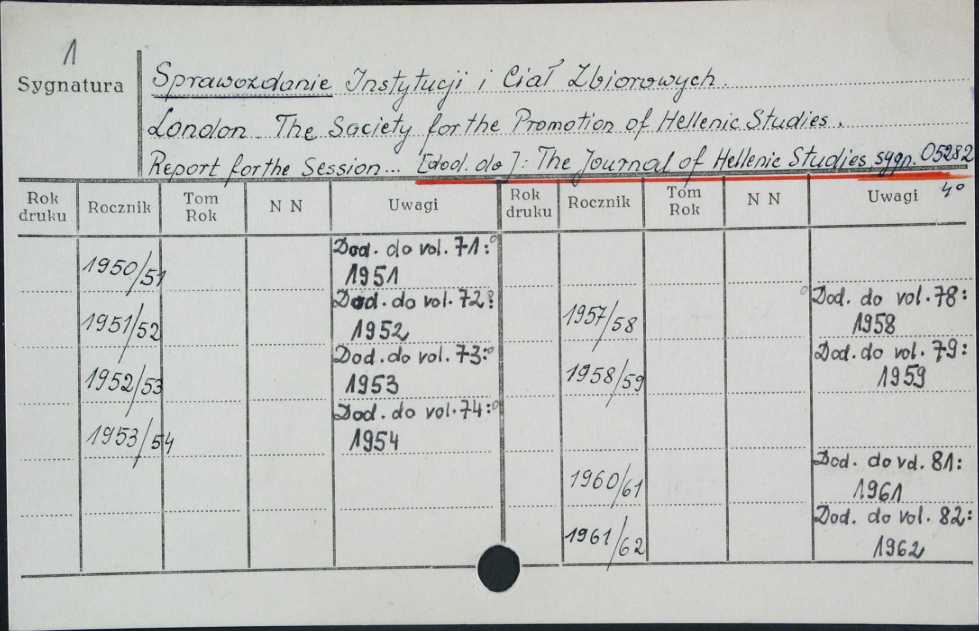 1
Sygnatura
Sprawozdanie Instytucji i Ciał Zbiorowych.
London. The Saciety for the Promotion of Hellenic Studies.
Report for the Session... [dod. do]: The Journal of Hellenic Studies, sygn. 05282
4°
Rok druku Rocznik Tom Rok N N Uwagi Rok druku Rocznik Tom Rok N N Uwagi
1950/51 Dod. do vol. 71:
1951
1951/52 Dod. do vol. 72:
1952
1952/53 Dod. do vol. 73:
1953
1953/54 Dod. do vol. 74:
1954
1957/58 Dod. do vol. 78:
1958
1958/59 Dod. do vol. 79:
1959
1960/61 Dod. do vol. 81:
1961
1961/62 Dod. do vol. 82:
1962